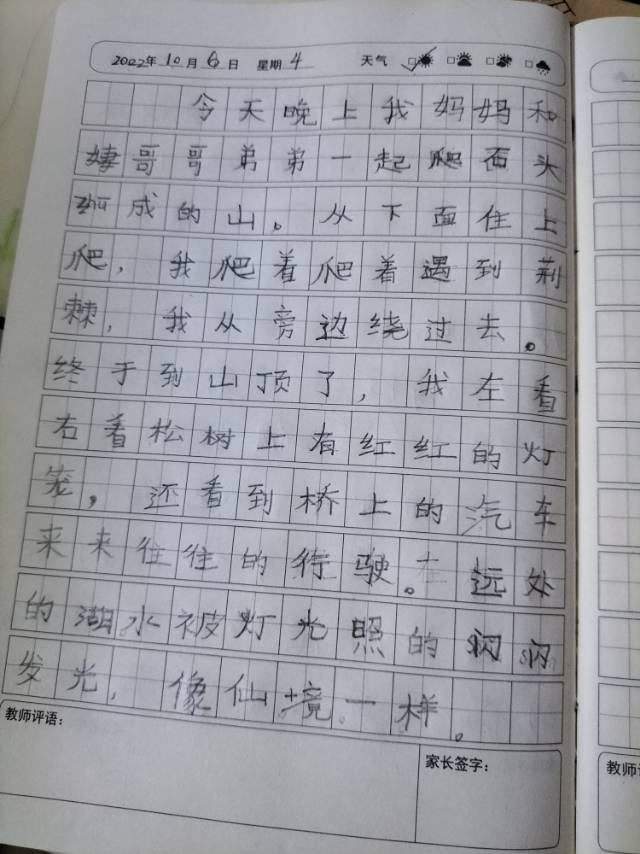 2022年10月6日 星期4 天气
今天晚上我妈妈和
哥哥弟弟一起爬石头
成的山。从下面住上
爬，我爬着爬着遇到荆
棘，我从旁边绕过去。
终于到山顶了，我左看
右着松树上有红红的灯
笼，还看到桥上的汽车
来来往往的行驶。在远处
的湖水被灯光照的闪闪
发光，像仙境一样。
教师评语：
家长签字：
教师评